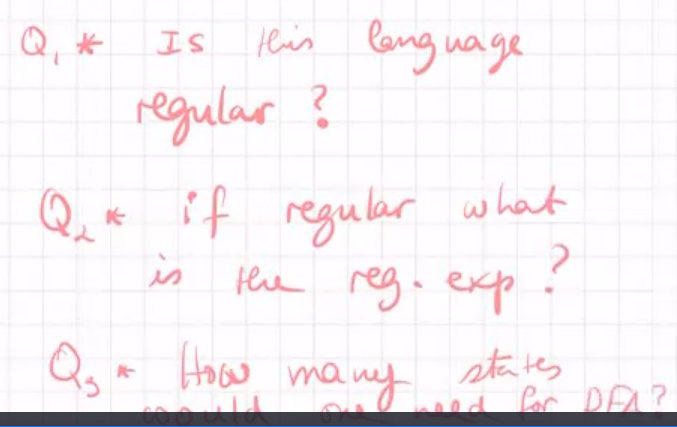 Q₁ * Is this language
regular ?
Q₂ * if regular what
is the reg. exp ?
Q₃ * How many states
would one need for DFA?